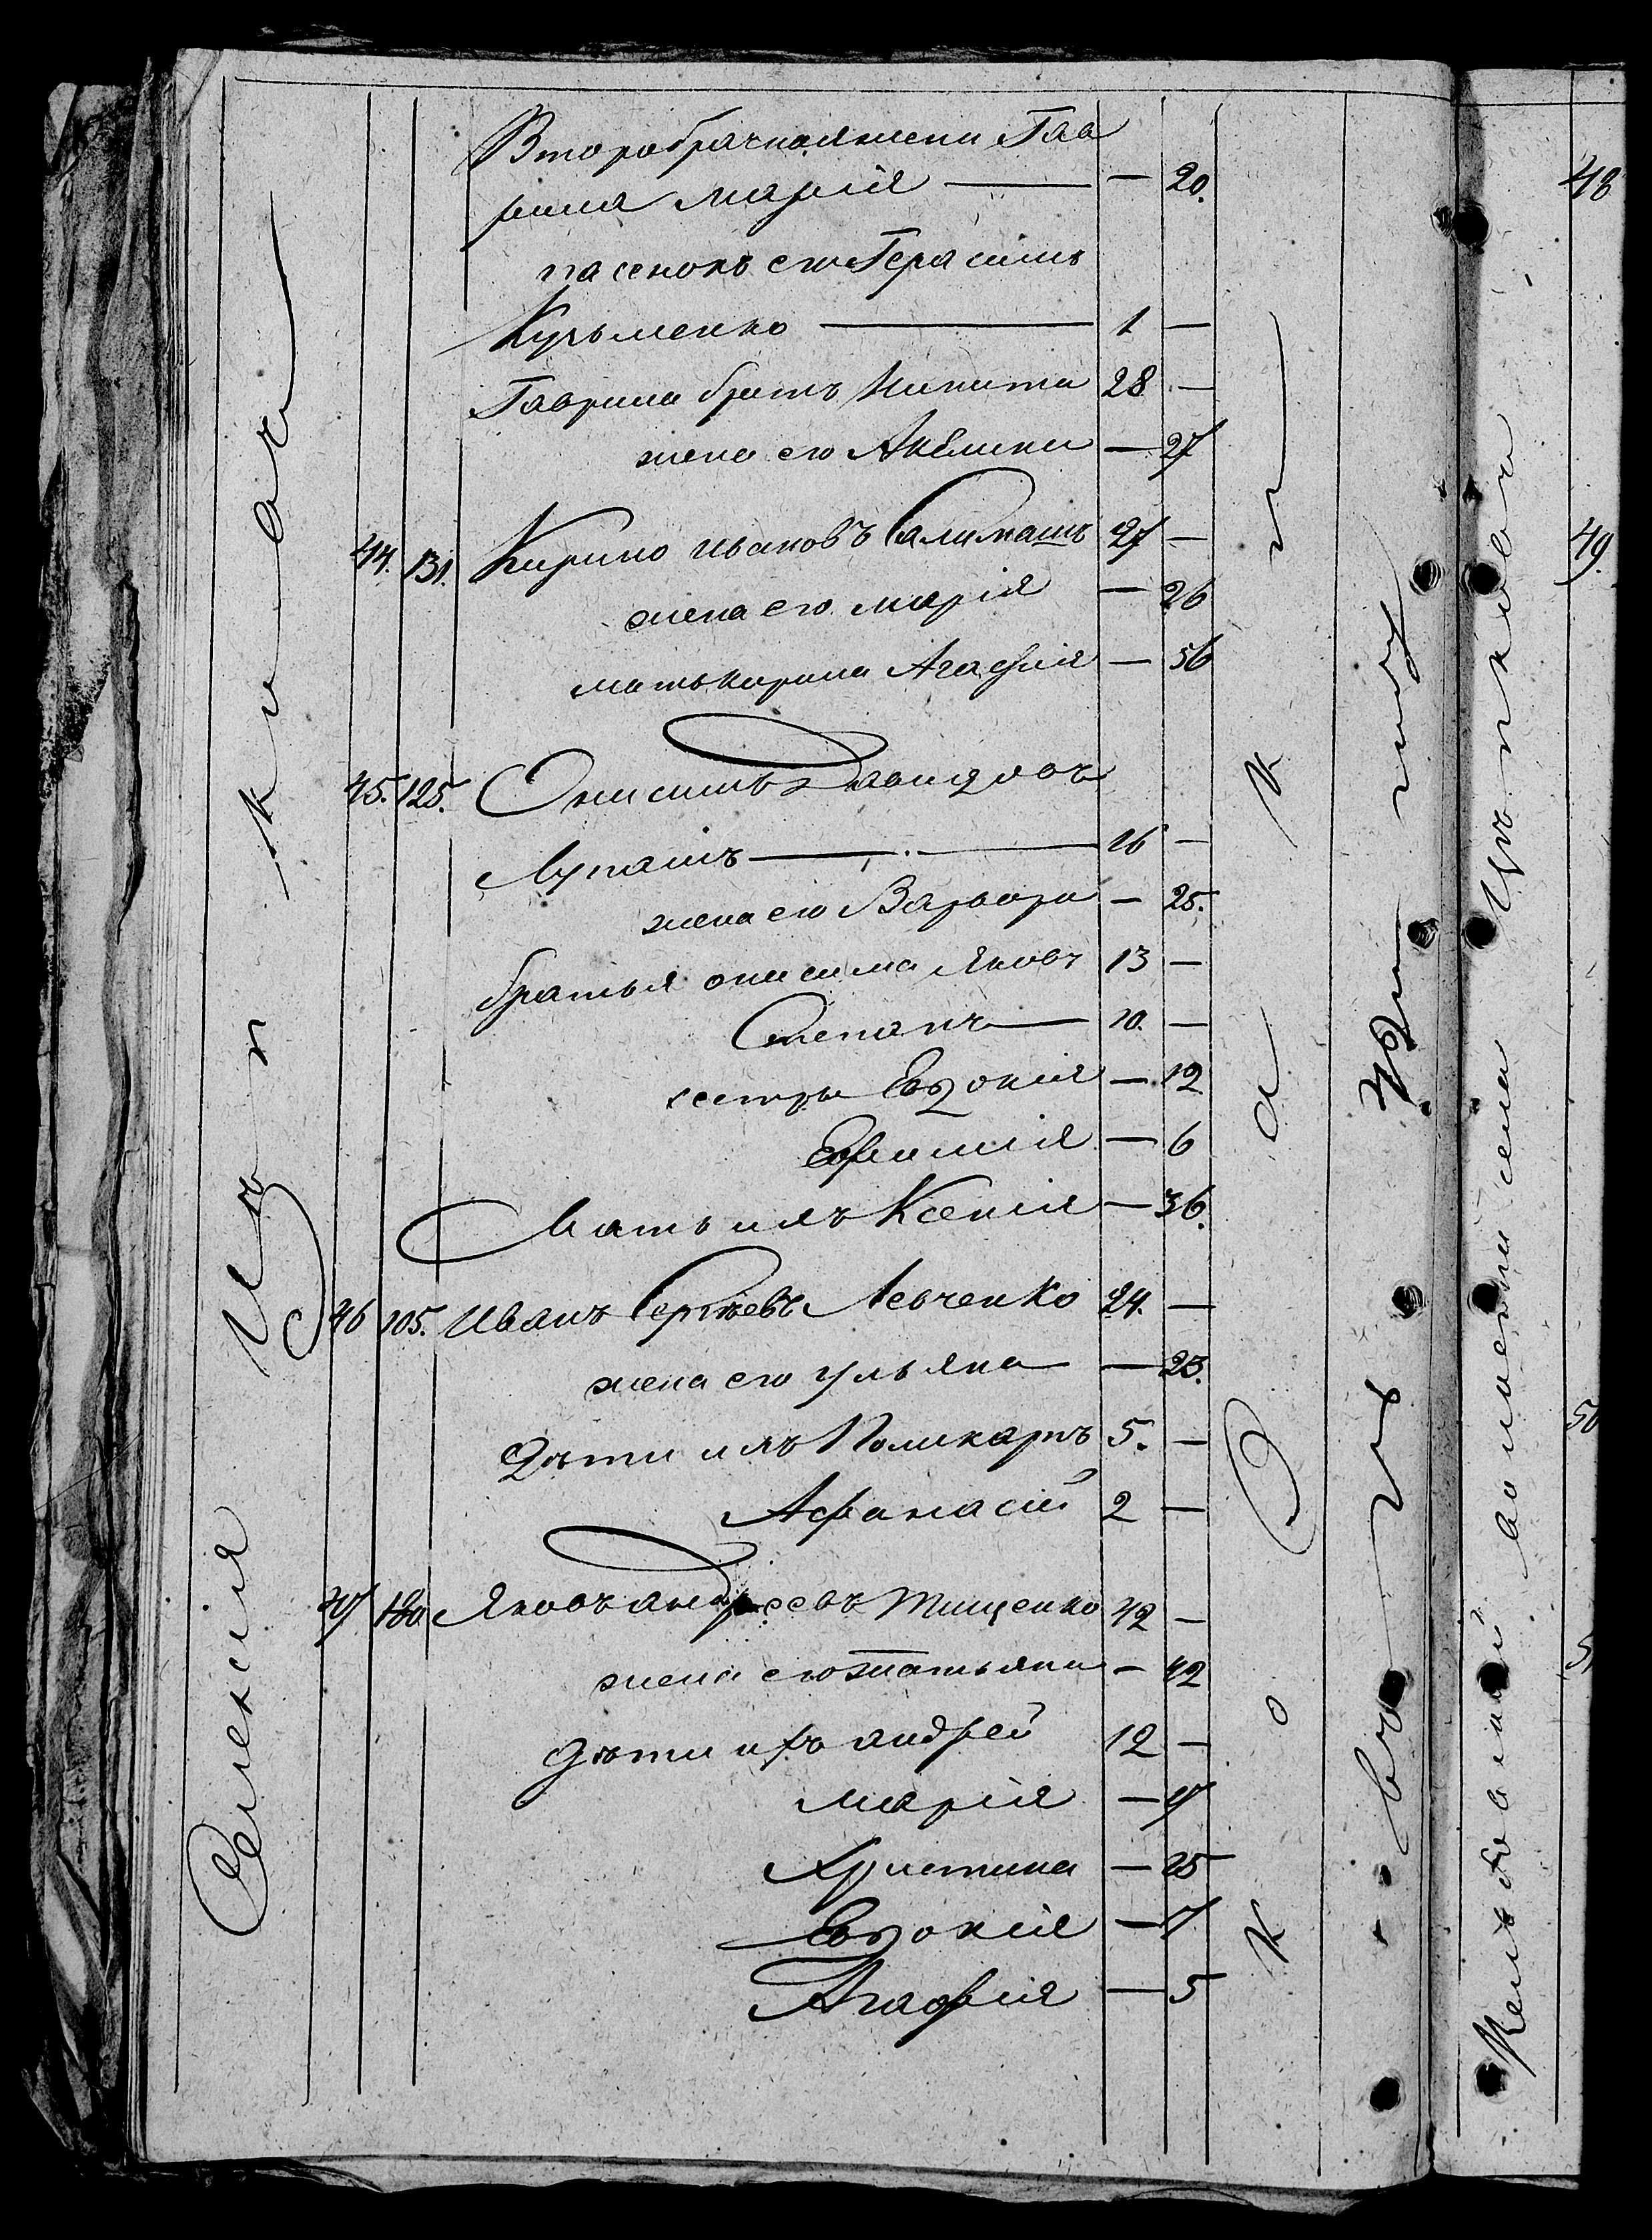 Второбрачная жена Гав
рила Марія — — 20.
пасенокъ его Герасимъ
Кузьменко — 1 —
Гаврила братъ Никита 28 —
жена его Акилина — 27
44. 131. Кирило Ивановъ 27 —
жена его Марія — 26
мать Кирила Агафія — 56
45. 125. Онисимъ Давидовъ
Лупашъ — 26 —
жена его Варвара — 25.
братья Онисима Яковъ 13 —
Степанъ — 10. —
сестры Евдокія — 12
Ефимія — 6
Мать ихъ Ксенія — 36.
46 105. Иванъ Сергѣевъ Левченко 24. —
жена его Ульяна — 23.
дѣти ихъ Поликарпъ 5. —
Афанасій 2 —
47 180. Яковъ Андреевъ Тищенко 42 —
жена его Татьяна — 42
дѣти ихъ Андрей 12 —
Марія — 17
Христина — 15
Евдокія — 7
Агафія — 5
48
49.
50